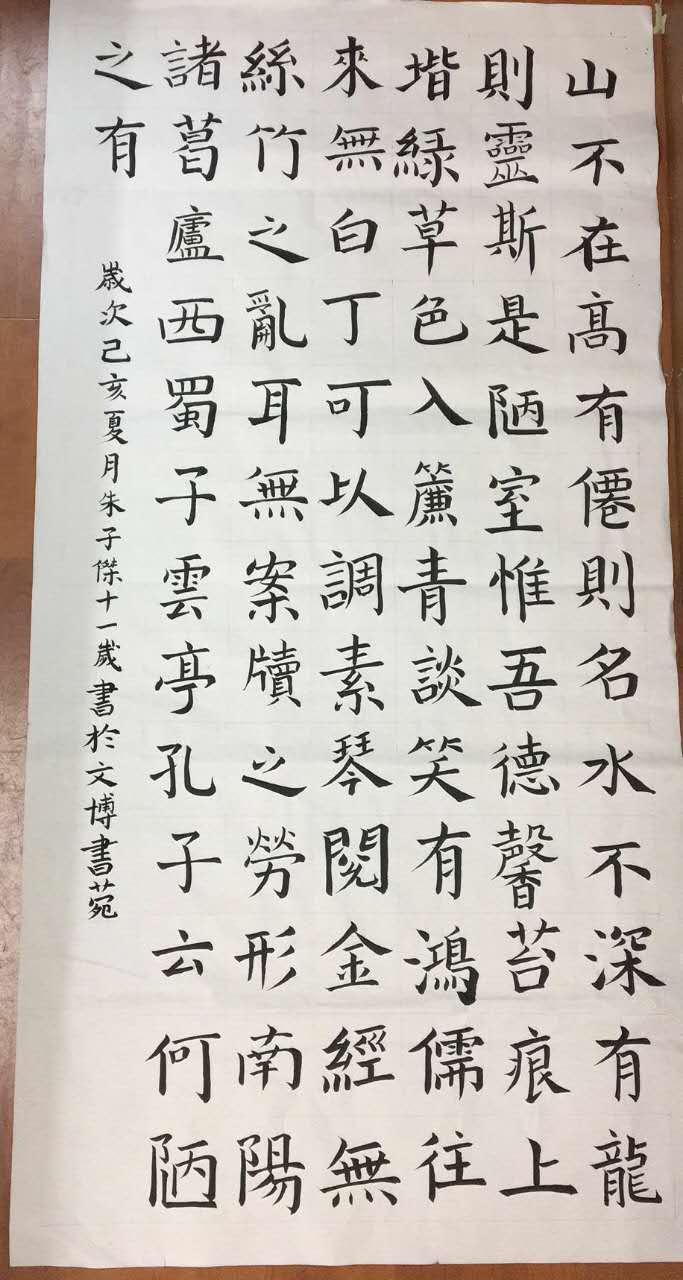 山不在高有僊則名水不深有龍
則靈斯是陋室惟吾德馨苔痕上
堦綠草色入簾青談笑有鴻儒往
來無白丁可以調素琴閱金經無
絲竹之亂耳無案牘之勞形南陽
諸葛廬西蜀子雲亭孔子云何陋
之有
歲次己亥夏月朱子傑十一歲書於文博書菀